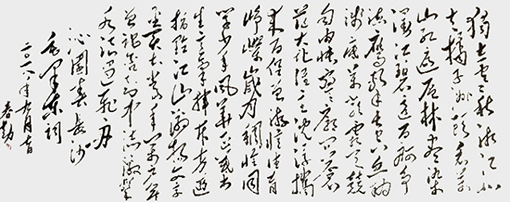 独立寒秋湘江北
去橘子洲头看万
山红遍层林尽染
漫江碧透百舸争
流鹰击长空鱼翔
浅底万类霜天竞
自由怅寥廓问苍
茫大地谁主沉浮携
来百侣曾游忆往昔
峥嵘岁月稠恰同
学少年风华正茂书
生意气挥斥方遒
指点江山激扬文字
粪土当年万户侯
曾记否到中流击
水浪遏飞舟
沁园春长沙
毛泽东词
二〇一八年